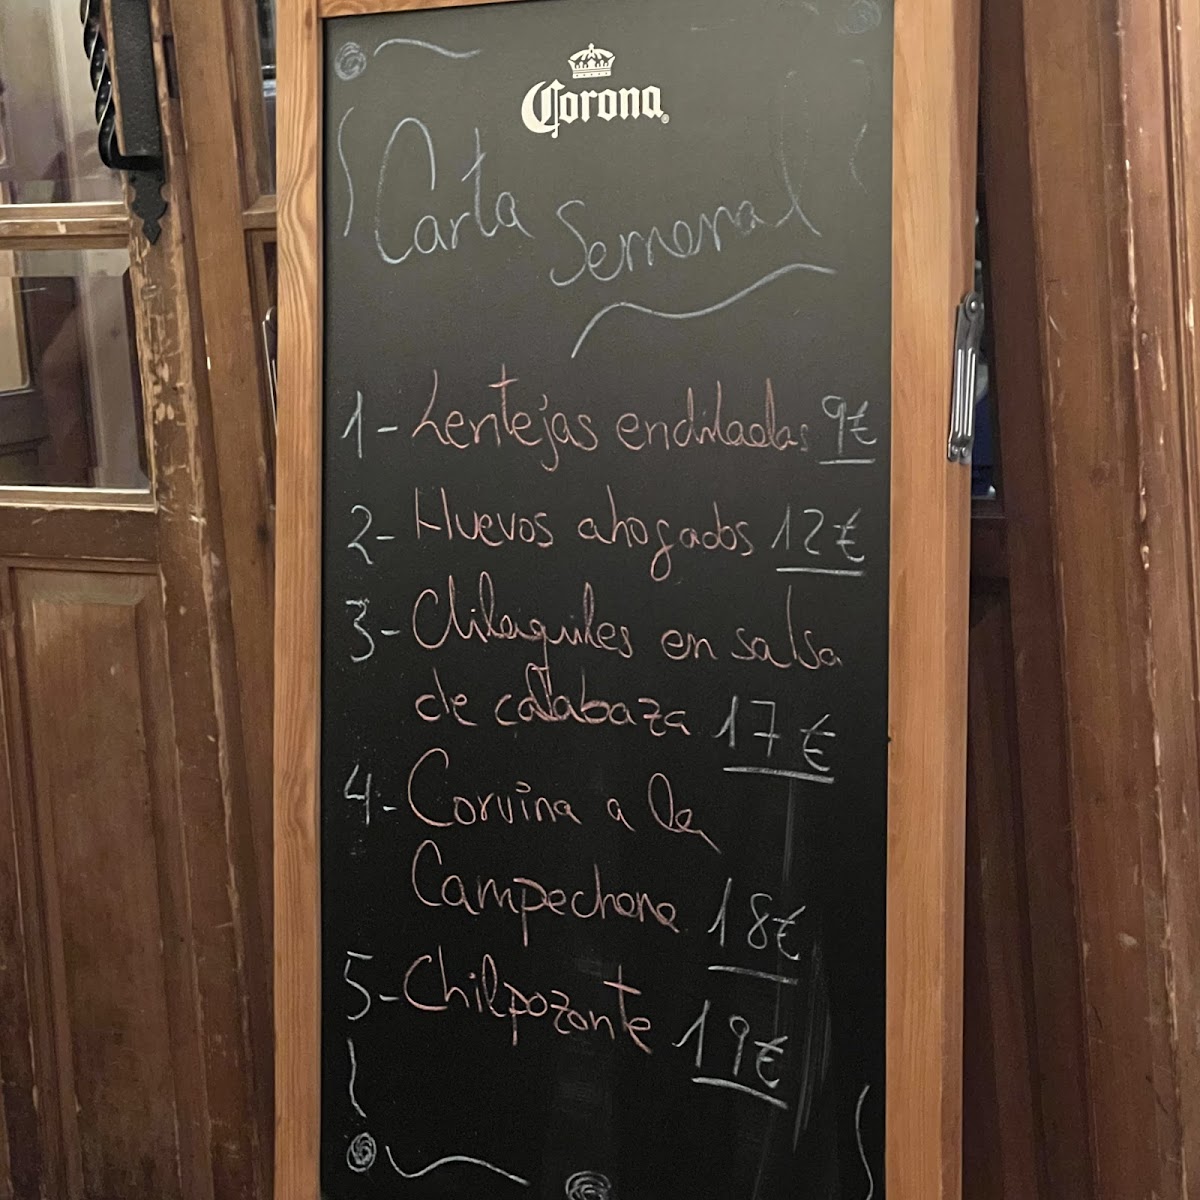 Corona
Carta Semanal
1- Lentejas endiladas 9€
2- Huevos ahogados 12€
3- Chilaquiles en salsa
de calabaza 17€
4- Corvina a la
Campechana 18€
5- Chilpozonte 19€